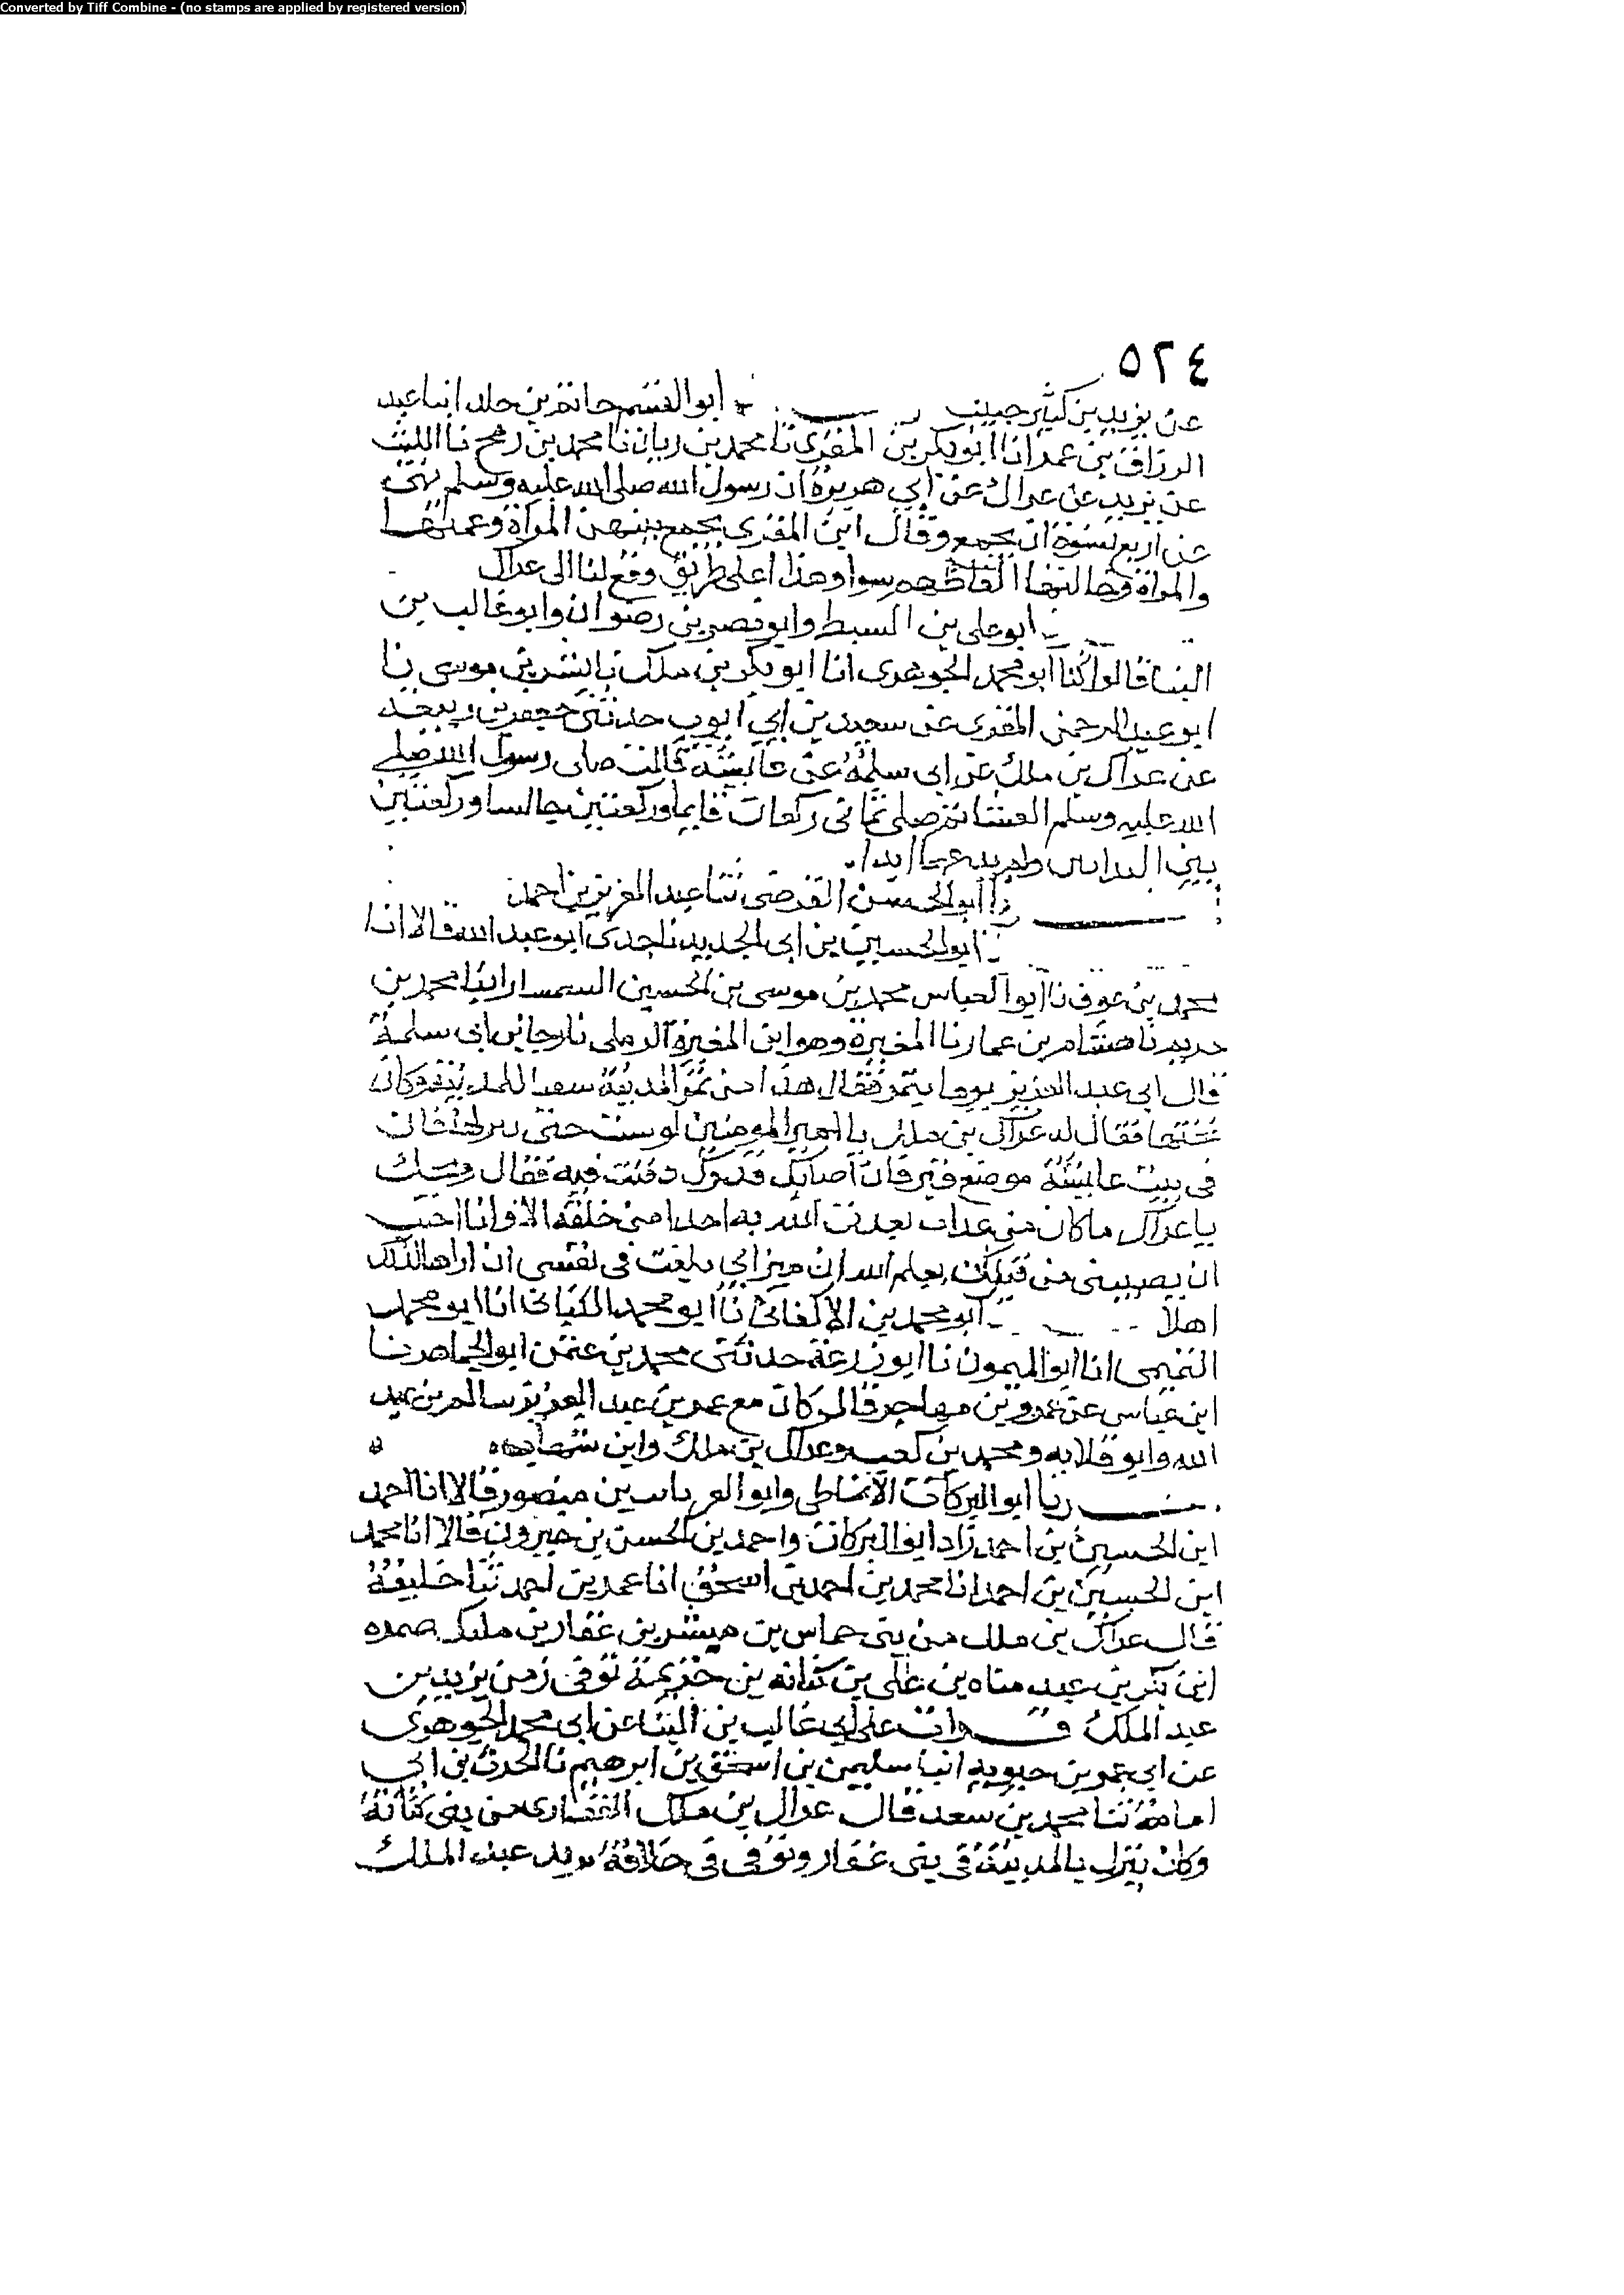 Converted by Tiff Combine - (no stamps are applied by registered version)
٥٢٤
عن يزيد بن حبيب ابو القسم حاتم بن انبا عبد
الرزاق بن عمر انا ابو بكر بن المقرى نا محمد بن ربان نا محمد بن رمح نا الليث
عن يزيد عن عراك عن ابي هريرة ان رسول الله صلى الله عليه وسلم نهى
عن اربع نسوة ان يجمع وقال ابن المقرى يجمع بينهن المراة وعمتها
والمراة وخالتها سوا وهذا اعلى طريق وقع لنا الى عراك
ابو على بن السبط وابو نصر بن رضوان وابو غالب بن
البنا قالوا انا ابو محمد الجوهرى انا ابو بكر بن ملك نا بشر بن موسى نا
ابو عبد الرحمن المقرى عن سعيد بن ابي ايوب حدثنى جعفر بن ربيعه
عن عراك بن ملك عن ابى سلمة عن عايشة قالت صلى رسول الله صلى
الله عليه وسلم العشا ثم صلى ثمانى ركعات قايما وركعتين جالسا وركعتين
بين
ابو الحسن الفرضى ثنا عبد العزيز بن احمد
ابو الحسين بن ابى الحديد نا جدى ابو عبد الله قالا انا
محمد بن عوف نا ابو العباس محمد بن موسى بن الحسين السمسار انبا محمد بن
خريم نا هشام بن عمار نا المغيرة وهو ابن المغيرة الرملى نا رجا بن ابى سلمة
قال ابى عبد العزيز يوما بتمر فقال هذا من تمر المدينة
فقال له عراك بن ملك يا امير المومنين لو حتى
فى بيت عايشة موضع قبر فان اصابك قدرك دفنت فيه فقال ويحك
يا عراك ما كان من عذاب يعذب الله به احدا من خلقه الا وانا احب
ان يصيبنى من قبل ان يعلم الله ان بلغت فى نفسى ان اراها لذلك
اهلا ابو محمد بن الاكفانى نا ابو محمد الكتانى انا ابو محمد
التميمى انا ابو الميمون نا ابو زرعة حدثنى محمد بن عثمن ابو الجماهر نا
ابن عياس عن عمرو بن مهاجر قال كان مع عمر بن عبد العزيز سالم بن عبد
الله وابو قلابه ومحمد بن كعب وعراك بن ملك وابن شهاب ه
نا ابو البركات الانماطى وابو العز بن منصور قالا انا احمد
ابن الحسين بن احمد زاد ابو البركات واحمد بن الحسن بن خيرون قالا انا محمد
ابن الحسين بن احمد انا محمد بن احمد بن اسحق انا عمر بن احمد ثنا خليفة
قال عراك بن ملك من بنى حماس بن مبشر بن غفار بن مليك
ابن بكر بن عبد مناه بن على بن كنانه بن خزيمة توفى زمن يزيد بن
عبد الملك قرات على ابي غالب بن البنا عن ابى محمد الجوهرى
عن ابي عمر بن حيويه انبا سليمن بن اسحق بن ابرهيم نا الحرث بن ابي
اسامة ثنا محمد بن سعد قال عراك بن ملك الغفارى من بنى كنانة
وكان ينزل بالمدينة فى بنى غفار وتوفى فى خلافة عبد الملك